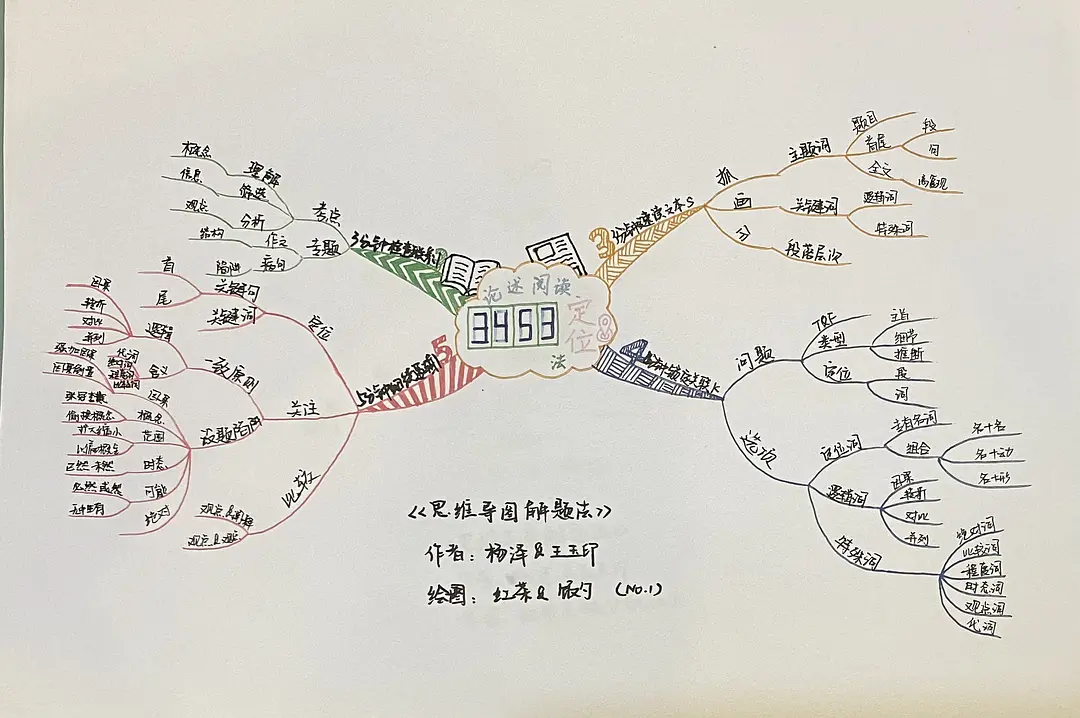 论述阅读
3453
定位
法
3
抓
主题词
题目
首尾
段
句
全文
高复现
画
关键词
逻辑词
特殊词
分
段落层次
4
问题
TRF
类型
主旨
细节
推断
定位
段
词
选项
定位词
专有名词
组合
名+名
名+动
名+形
逻辑词
因果
转折
对比
并列
特殊词
绝对词
比较词
程度词
时态词
观点词
代词
5
定位
关键句
首
尾
关键词
关注
一致原则
逻辑
因果
转折
对比
并列
含义
代词
设题陷阱
因果
强加因果
因果倒置
概念
张冠李戴
偷换概念
范围
扩大缩小
以偏概全
时态
已然未然
可能
必然或然
绝对
无中生有
比较
观点&观点
考点
理解
概念
筛选
信息
分析
观点
专题
作文
结构
病句
陷阱
《思维导图解题法》
作者：杨泽&王玉印
绘图：红茶& (No.1)